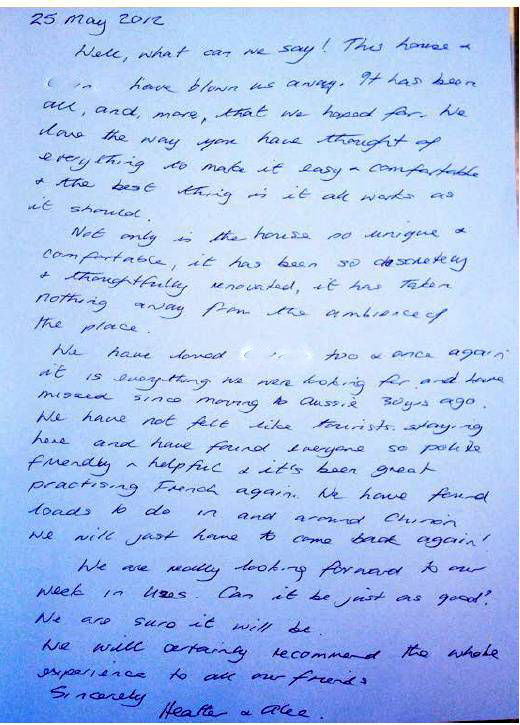 25 May 2012
Well, what can we say! This house &
have blown us away. It has been
all, and, more, that we hoped for. We
love the way you have thought of
everything to make it easy & comfortable
& the best thing is it all works as
it should.
Not only is the house so unique &
comfortable, it has been so discretely
& thoughtfully renovated, it has taken
nothing away from the ambience of
the place.
We have loved too & once again
it is everything we were looking for and have
missed since moving to Aussie 30yrs ago.
We have not felt like tourists staying
here and have found everyone so polite
friendly & helpful & it's been great
practising French again. We have found
loads to do in and around Chinon
We will just have to come back again!
We are really looking forward to our
week in Uzes. Can it be just as good?
We are sure it will be.
We will certainly recommend the whole
experience to all our friends
Sincerely
Heather &